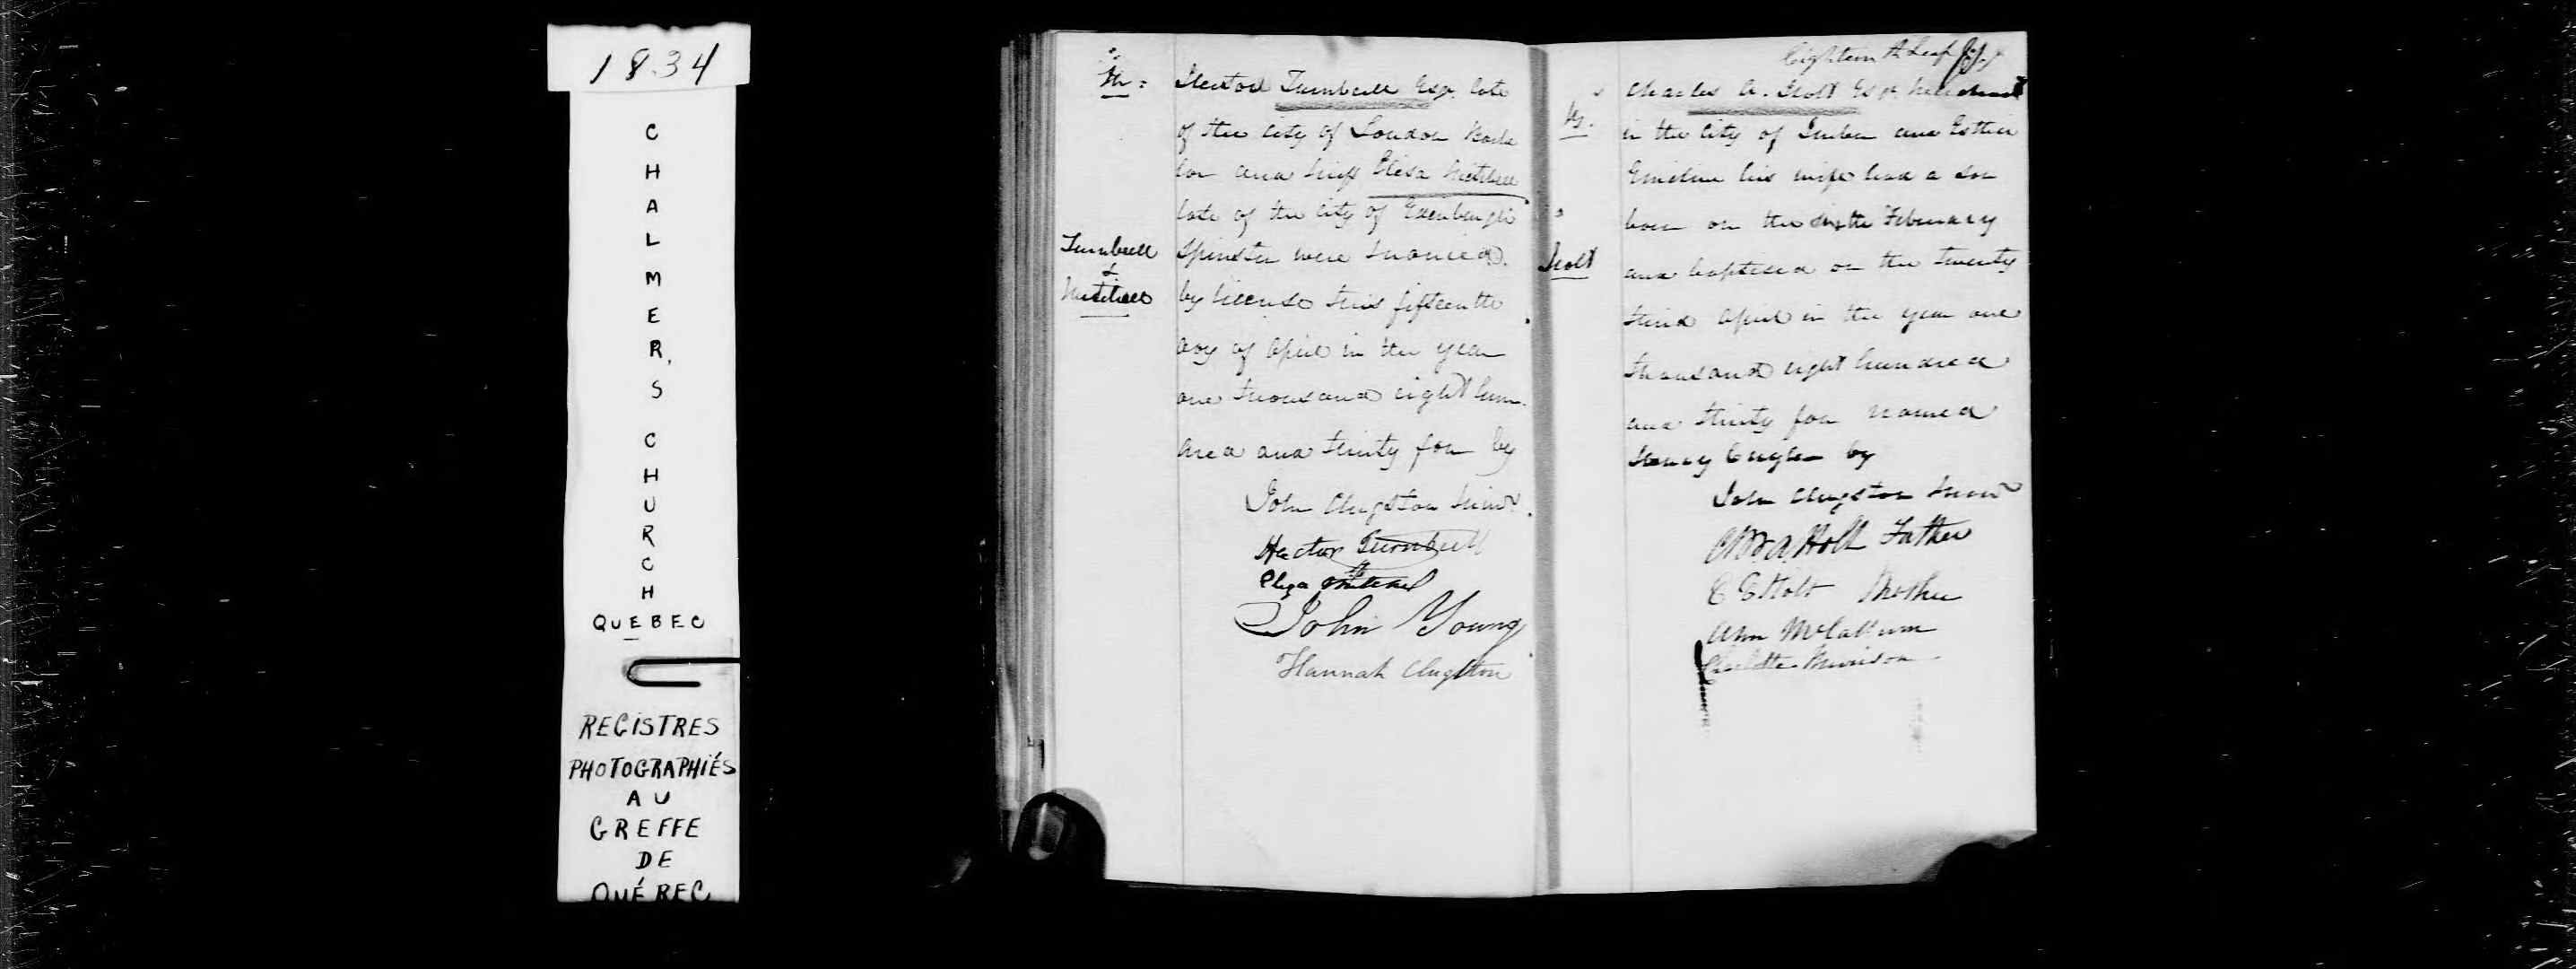 1834
CHALMER,S
CHURCH
QUEBEC
REGISTRES
PHOTOGRAPHIÉS
AU
GREFFE
DE
QUÉBEC
M:
Turnbull
&
Mitchell
Hector Turnbull Esqr. late
of the city of London Bache
lor and Miss Elisa Mitchell
late of the city of Edinburgh
Spinster were married
by license this fifteenth
day of April in the year
one thousand eight hun
dred and thirty four by
John Clugston Minr.
Hector Turnbull
Eliza Mitchell
John Young
Hannah Clugston
Eighteenth Leaf
B.
Holt
Charles A. Holt Esqr. Merchant
in the city of Quebec and Esther
Emeline his wife had a son
born on the sixth February
and baptised on the twenty
third April in the year one
thousand eight hundred
and thirty four named
Henry by
John Clugston Minr
Holt Father
E E Holt Mother
Ann McCallum
Charlotte Morrison